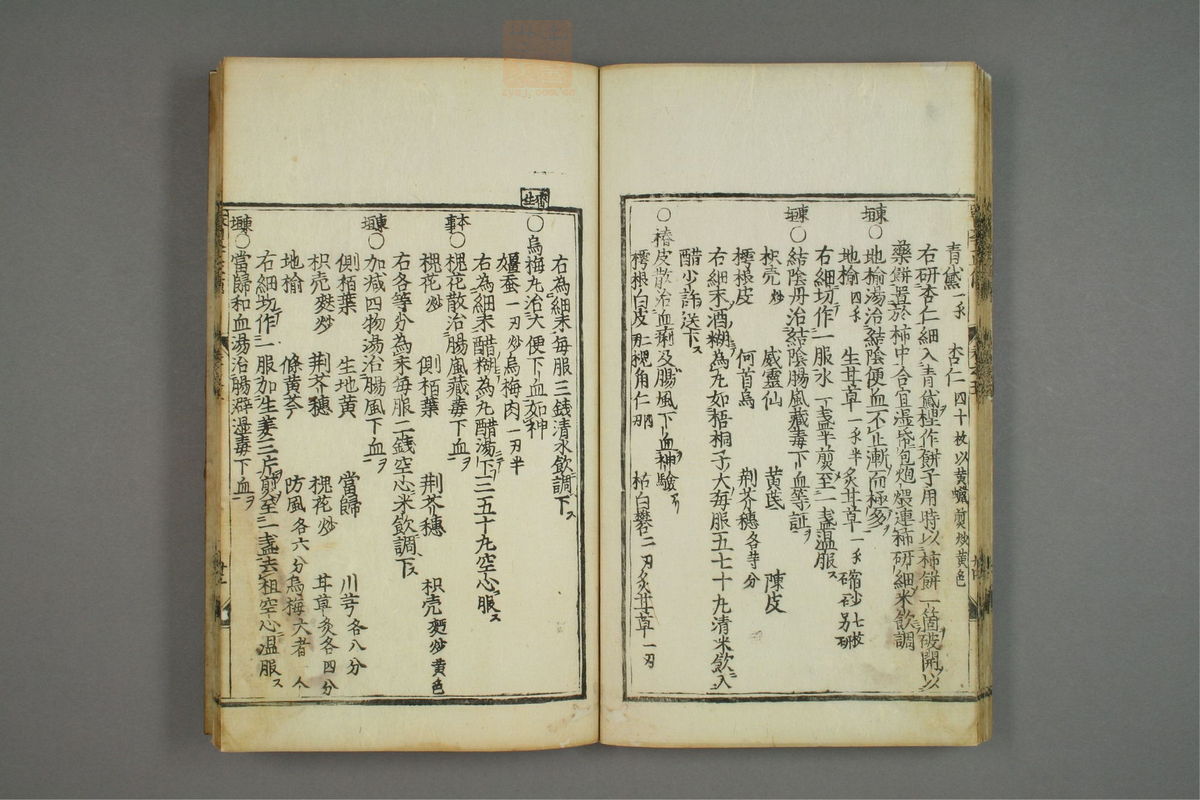 青黛一錢 杏仁四十枚以黄蠟煎炒黄色
右研杏仁細入青黛捏作餅子用時以柿餅一箇破開以
藥餅置於柿中合定湿帋包炮煨連柿研細米飲調
東垣○地榆湯治結陰便血不止漸而極多
地榆四錢 生甘草一錢半 炙甘草一錢 縮砂七枚另研
右細切作一服水一盞半煎至一盞温服ス
東垣○結陰丹治結陰腸風臓毒下血等証ヲ
枳壳炒 威靈仙 黄茋 陳皮
樗根皮 何首烏 荆芥穗各等分
右細末酒糊為丸如梧桐子大每服五七十丸清米飲入
醋少許送下ス
○椿皮散治血痢及腸風下血神驗
樗根白皮 槐角仁 枯白礬二両 炙甘草一両
右為細末每服三錢清水飲調下ス
○烏梅丸治大便下血如神
殭蚕一両炒 烏梅肉一両半
右為細末醋糊為丸醋湯下三五十丸空心服ス
本事○槐花散治腸風臓毒下血ヲ
槐花炒 側栢葉 荆芥穗 枳壳麩炒黄色
右各等分為末每服二錢空心米飲調下ス
東垣○加減四物湯治腸風下血ヲ
側栢葉 生地黄 當歸 川芎各八分
枳壳麩炒 荆芥穗 槐花炒 甘草炙各四分
地榆 條黄芩 防風各六分 烏梅大者
右細切作一服加生姜三片煎至一盞去租空心温服ス
東垣○當歸和血湯治腸澼湿毒下血ヲ